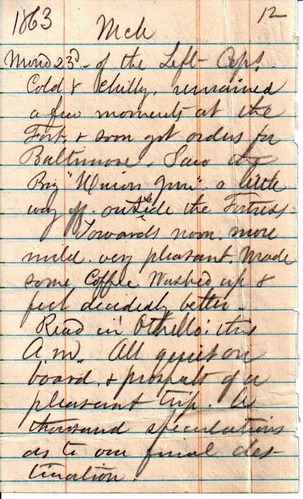 1863 Mch 12
Mond 23d - of the Left Capt.
Cold & chilly, remained
a few moments at the
Fort & soon got orders for
Baltimore. Saw the
Big "Union Gun" a little
way off outside the Fortress.
Towards noon more
mild. very pleasant. Made
some Coffee Washed up &
feel decidedly better.
Read in Othello: this
A.M. All quiet on
board, & prospects of a
pleasant trip. A
thousand speculations
as to our final des-
tination.